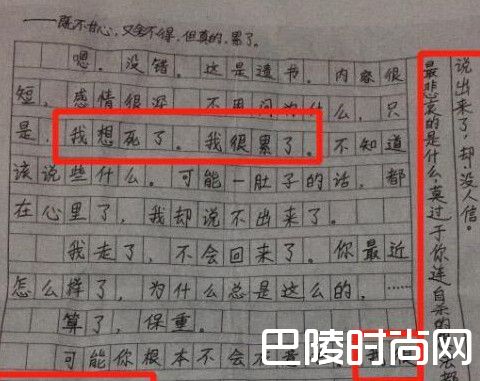 ——既不甘心，又舍不得，但真的，累了。
嗯。没错。这是遗书。内容很
短，感情很深。不用问为什么，只
是，我想死了。我很累了。不知道
该说些什么。可能一肚子的话，都
在心里了，我却说不出来了。
我走了，不会回来了。你最近
怎么样了，为什么总是这么的，……
算了，保重。
可能你根本不会
说出来了，却没人信。
最悲哀的是什么，莫过于你连自杀的
巴陵时尚网